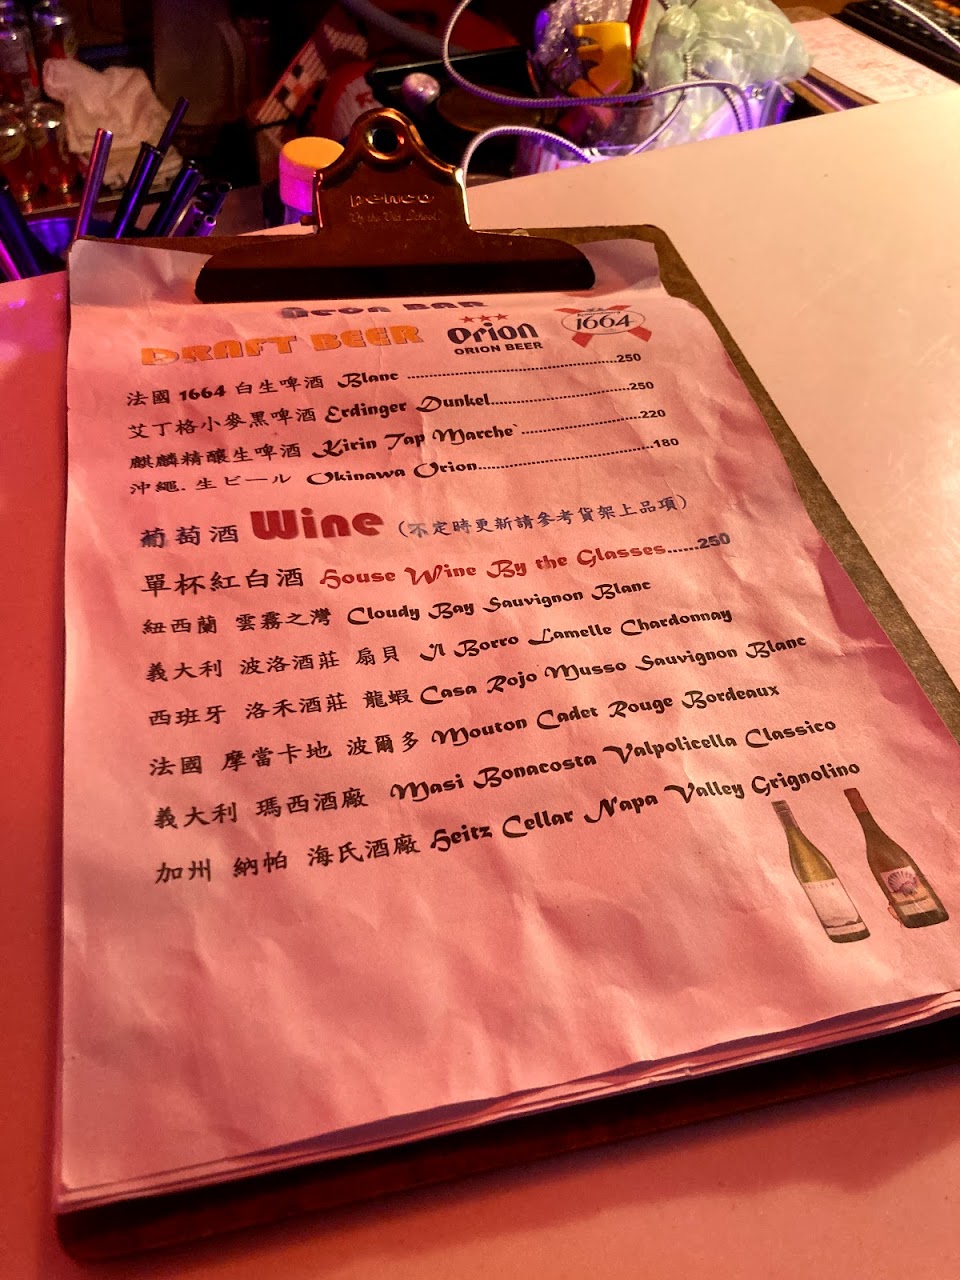 penco
BAR
DRAFT BEER
Orion
ORION BEER
1664
法國 1664 白生啤酒 Blanc ........................................................250
艾丁格小麥黑啤酒 Erdinger Dunkel....................................250
麒麟精釀生啤酒 Kirin Tap Marche`..............................220
沖繩.生ビール Okinawa Orion.............................................180
葡萄酒 Wine (不定時更新請參考貨架上品項)
單杯紅白酒 House Wine By the Glasses......250
紐西蘭 雲霧之灣 Cloudy Bay Sauvignon Blanc
義大利 波洛酒莊 扇貝 Il Borro Lamelle Chardonnay
西班牙 洛禾酒莊 龍蝦 Casa Rojo Musso Sauvignon Blanc
法國 摩當卡地 波爾多 Mouton Cadet Rouge Bordeaux
義大利 瑪西酒廠 Masi Bonacosta Valpolicella Classico
加州 納帕 海氏酒廠 Heitz Cellar Napa Valley Grignolino